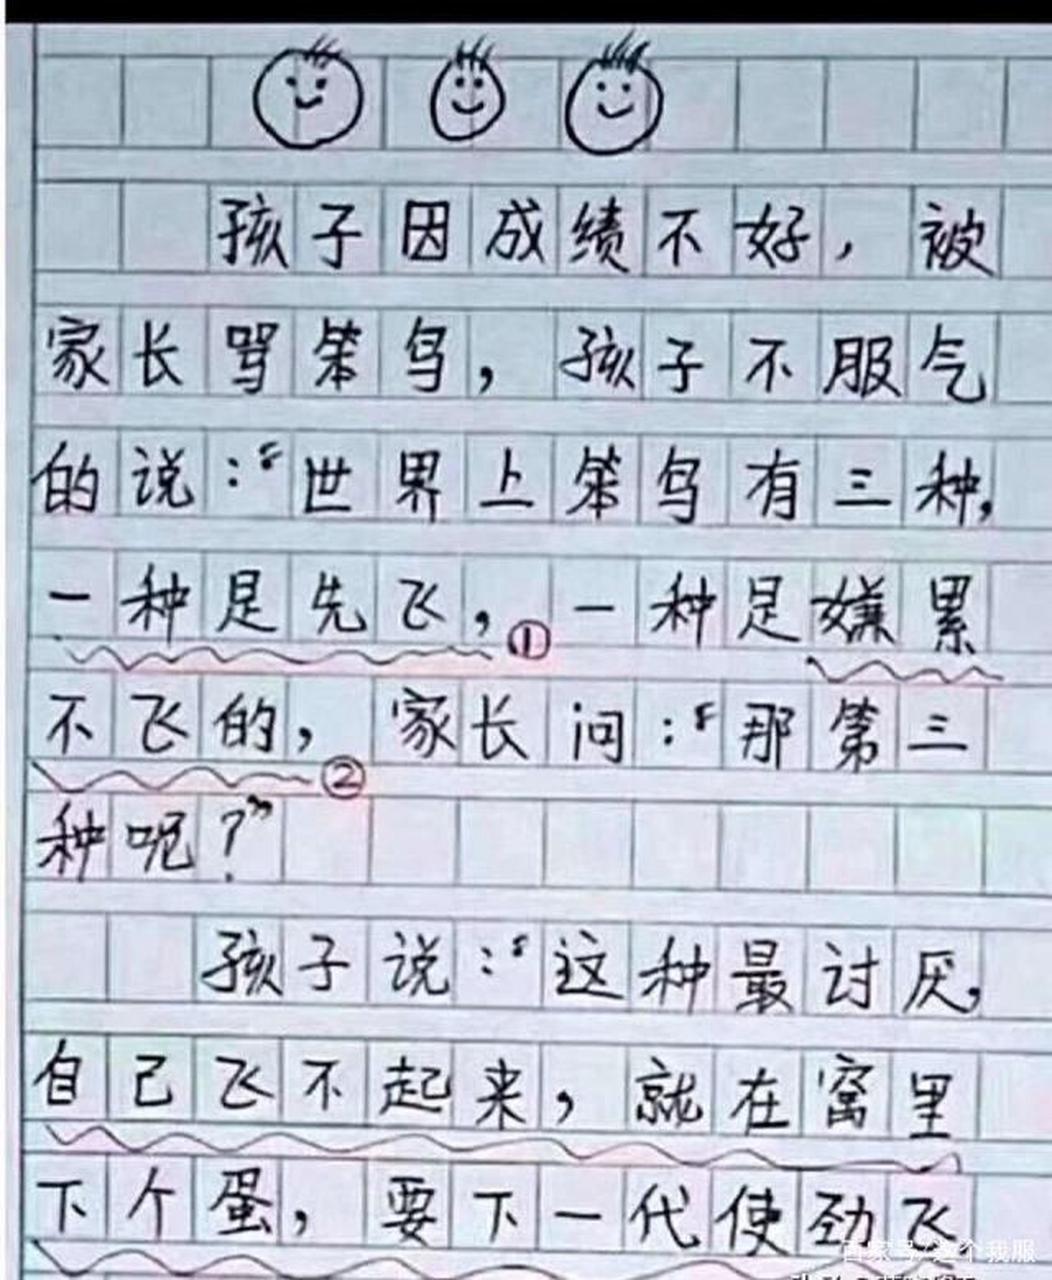 孩子因成绩不好，被
家长骂笨鸟，孩子不服气
的说：“世界上笨鸟有三种，
一种是先飞，①一种是嫌累
不飞的，②家长问：“那第三
种呢？”
孩子说：“这种最讨厌，
自己飞不起来，就在窝里
下个蛋，要下一代使劲飞
百家号/这个我服